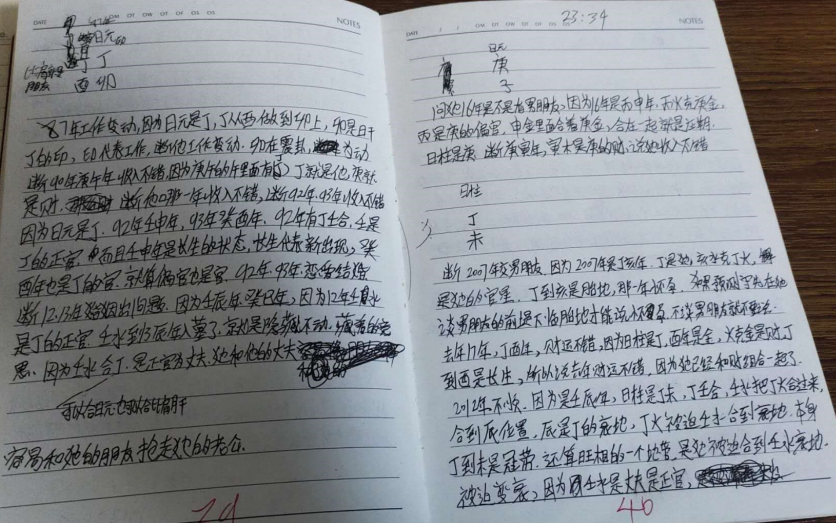 DATE
NOTES
日元
丁
酉 卯
87年工作变动,因为日元是丁,丁从酉做到卯上,卯是日干
丁的印,印代表工作,断他工作变动.卯在震卦,为动
断90年庚午年收入不错,因为庚午的午里面有丁,丁就是他,庚就
是财.断他那一年收入不错,断92年.93年收入不错
因为日元是丁.92年壬申年,93年癸酉年.92年有丁壬合,壬是
丁的正官.而且壬申年是长生的状态,长生代表新出现,癸
酉年也是丁的官.就算偏官也是官.92年.93年恋爱结婚
断12.13年婚姻出问题.因为壬辰年.癸巳年,因为12年壬水
是丁的正官.壬水到辰年入墓了.就是隐藏不动.藏着的意
思.因为壬水合丁.是正官为丈夫.她和他的丈夫
可以合日元也可以合年月干
容易和她的朋友抢走她的老公.
29
DATE
NOTES
23:34
日元
庚
子
问她16年是不是有男朋友,因为16年是丙申年.丙火克庚金,
丙是庚的偏官,申金里面含着庚金,合在一起就是近期.
日柱是庚.断庚寅年,寅木是庚的财.说她收入不错
日柱
丁
未
断2007年交男朋友.因为2007年是丁亥年.丁是她,亥水克丁火,
是她的官星.丁到亥是胎地,那一年怀孕.如果预测宇
谈男朋友的前提下临胎地才能说怀孕,不谈男朋友就不要说.
去年17年,丁酉年,财运不错,因为日柱是丁,酉年是金,火克金是财,丁
到酉是长生,所以说去年财运不错.因为她已经和财组合一起了.
2012年.不快.因为是壬辰年,日柱是丁未,丁壬合,壬水把丁火合过来,
合到辰位置.辰是丁的衰地,丁火被迫壬水合到衰地.本身
丁到未是冠带.还算旺相的一个地方.是她被迫合到壬水衰地.
被迫变衰,因为壬水是丈夫是正官,
46